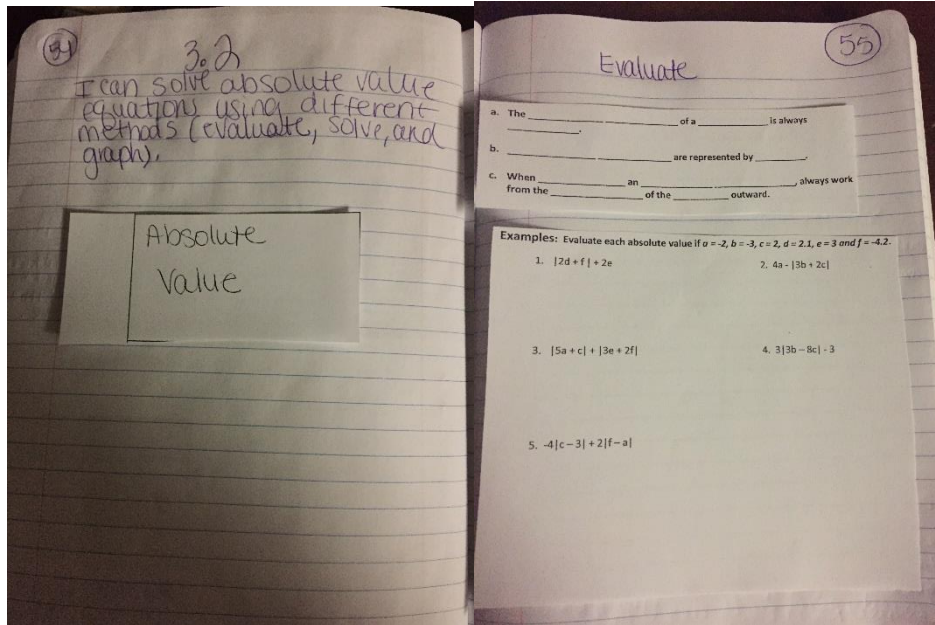 54
3.2
I can solve absolute value
equations using different
methods (evaluate, solve, and
graph).
Absolute
Value
55
Evaluate
a. The ____________ of a ____________ is always
____________.
b. ____________ ____________ are represented by ____________.
c. When ____________ an ____________ ____________, always work
from the ____________ of the ____________ outward.
Examples: Evaluate each absolute value if a = -2, b = -3, c = 2, d = 2.1, e = 3 and f = -4.2.
1. |2d + f| + 2e
2. 4a - |3b + 2c|
3. |5a + c| + |3e + 2f|
4. 3|3b – 8c| - 3
5. -4|c – 3| + 2|f – a|